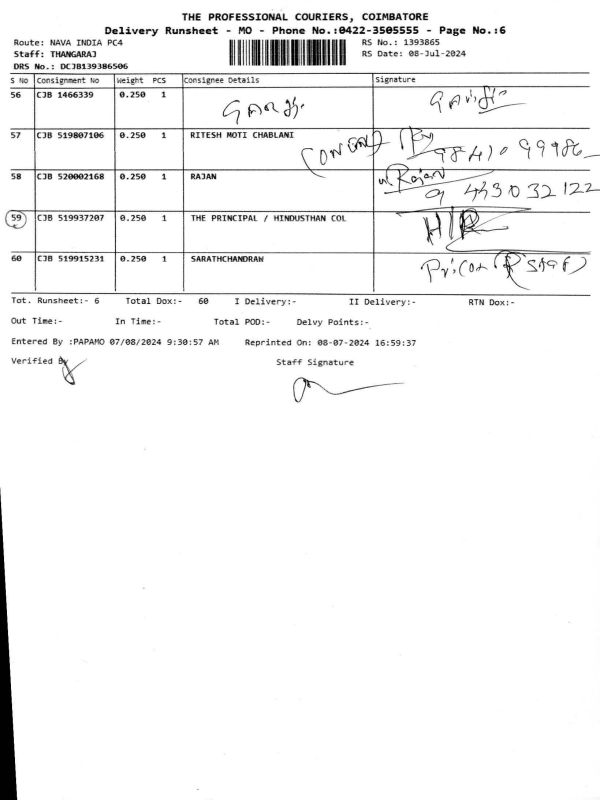 THE PROFESSIONAL COURIERS, COIMBATORE
Delivery Runsheet - MO - Phone No.:0422-3505555 - Page No.:6
Route: NAVA INDIA PC4
RS No.: 1393865
Staff: THANGARAJ
RS Date: 08-Jul-2024
DRS No.: DCJB139386506
S No Consignment No Weight PCS Consignee Details Signature
56 CJB 1466339 0.250 1
57 CJB 519807106 0.250 1 RITESH MOTI CHABLANI
98410 99986
58 CJB 520002168 0.250 1 RAJAN Rajan
9443032122
59 CJB 519937207 0.250 1 THE PRINCIPAL / HINDUSTHAN COL
60 CJB 519915231 0.250 1 SARATHCHANDRAN
Tot. Runsheet:- 6 Total Dox:- 60 I Delivery:- II Delivery:- RTN Dox:-
Out Time:- In Time:- Total POD:- Delvy Points:-
Entered By :PAPAMO 07/08/2024 9:30:57 AM Reprinted On: 08-07-2024 16:59:37
Verified By Staff Signature